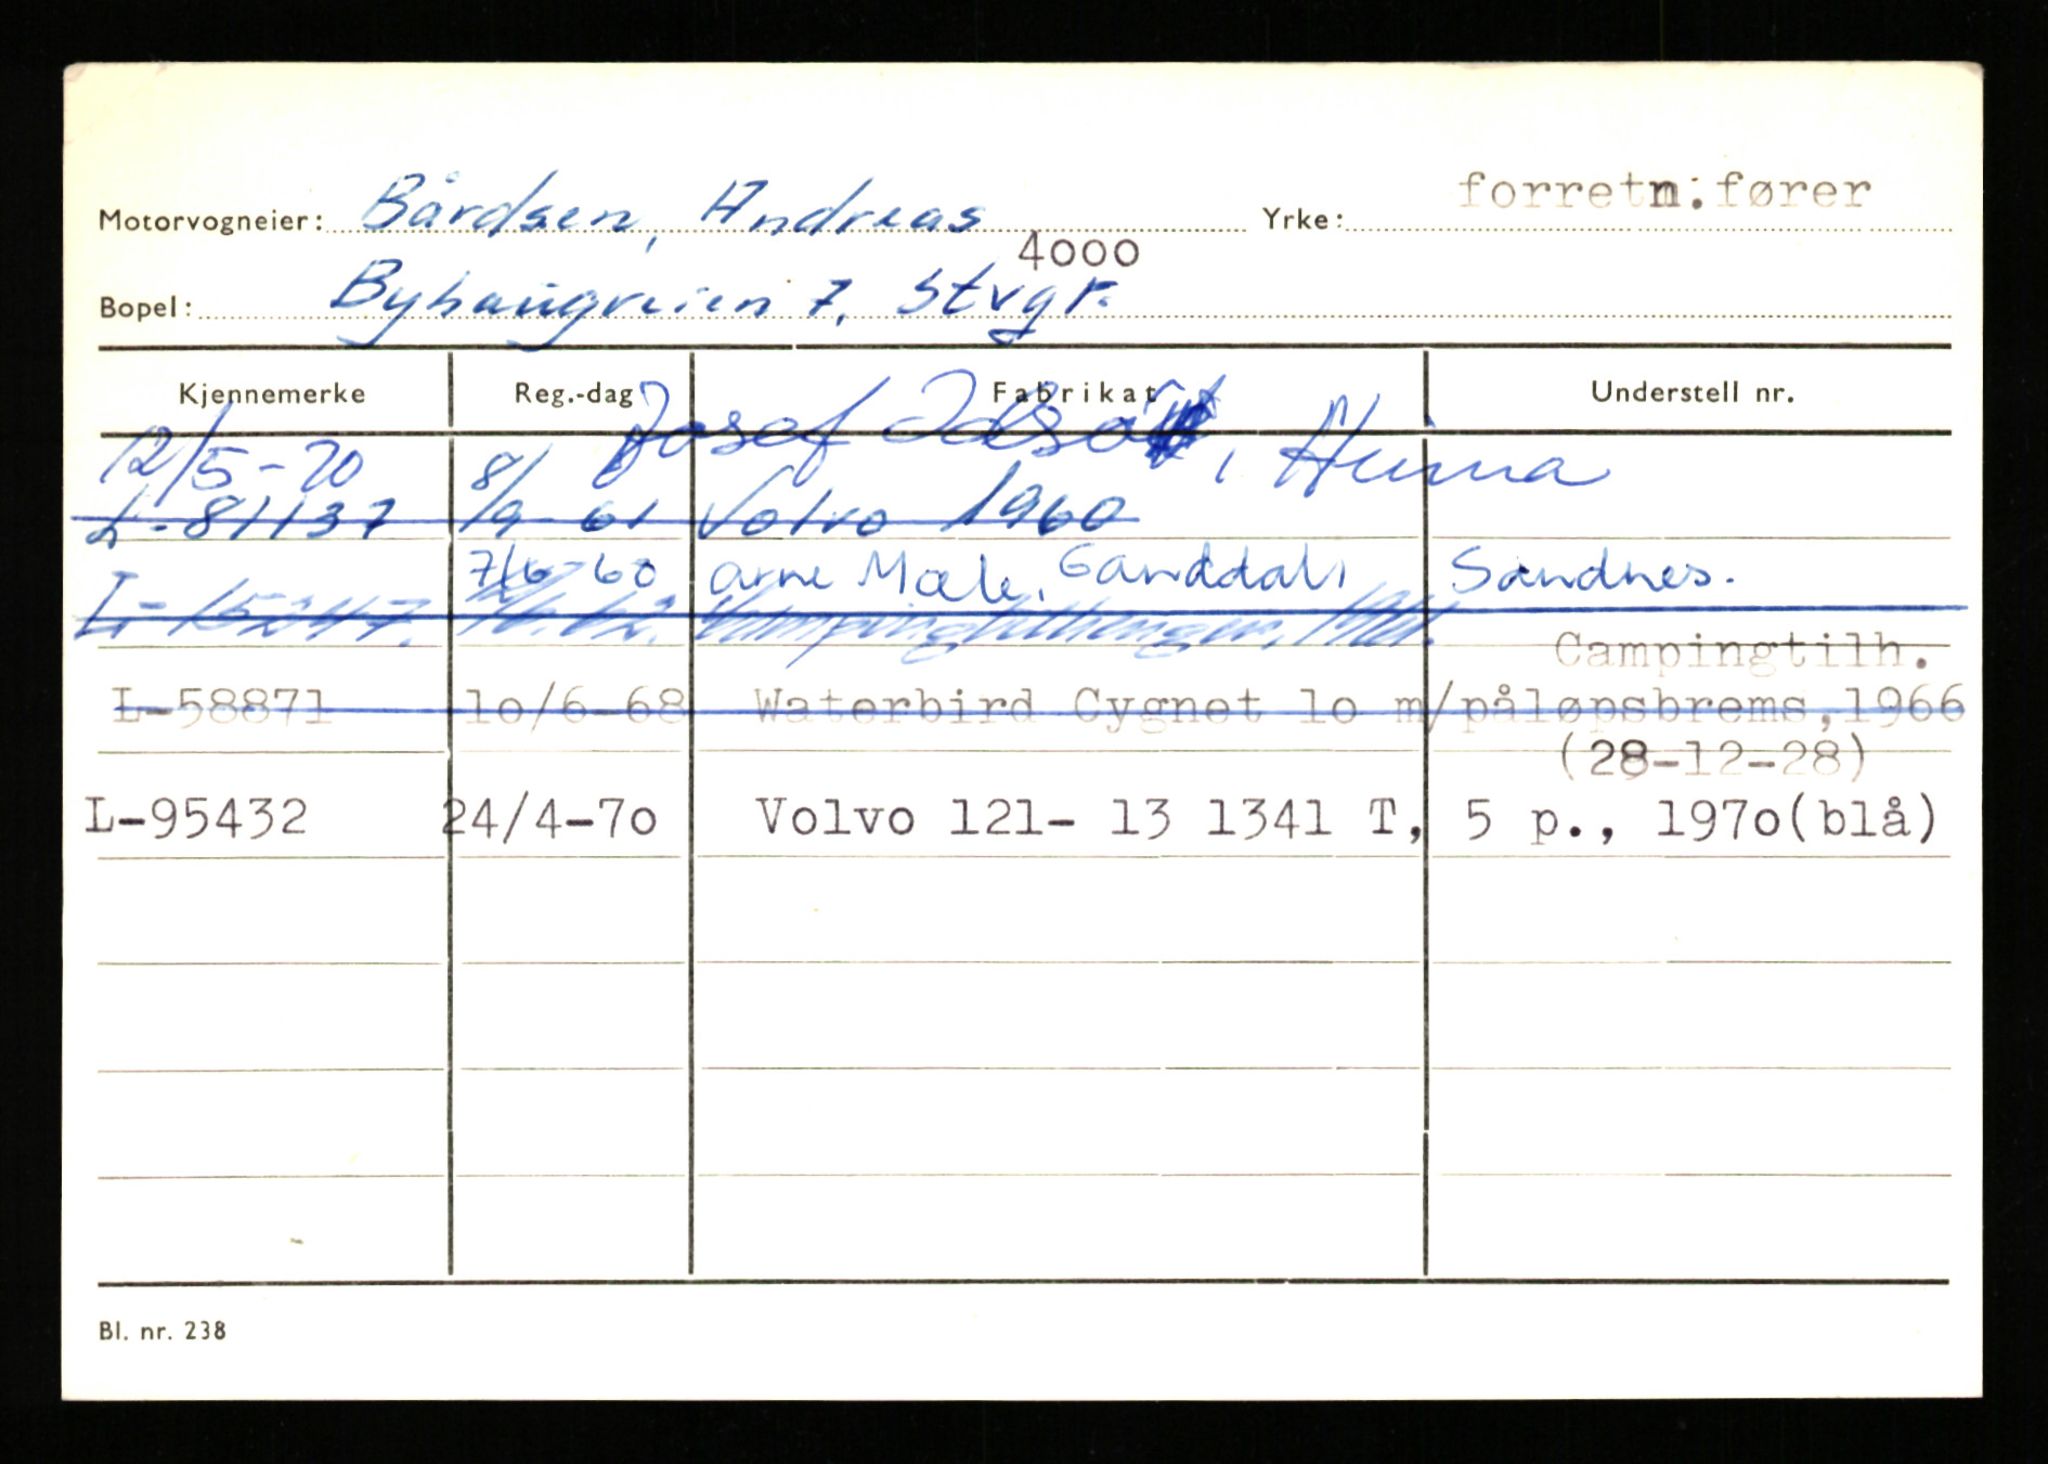 Motorvogneier: Bårdsen, Andreas Yrke: forretn.fører
4000
Bopel: Byhaugveien 7, Stvgr.
Kjennemerke Reg.-dag Fabrikat Understell nr.
12/5-70 Josef Idsø, Heima
L-81137 8/9-61 Volvo 1960
7/6-60 Arne Mæle, Ganddal, Sandnes.
L-15247. Campingtilhenger, 
Campingtilh.
L-58871 10/6-68 Waterbird Cygnet 10 m/påløpsbrems, 1966
(28-12-28)
L-95432 24/4-70 Volvo 121- 13 1341 T, 5 p., 1970(blå)
Bl. nr. 238